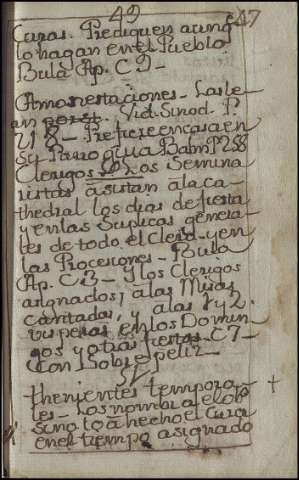 49 47
Curas. Prediquen aunq
lo hagan en el Pueblo.
Bula Ap. C 9 —
Amonestaciones — Las le
an Vid. Sinod. P.
218 — Prefiere en casa en
su Parroquia Bam P 258
Clerigos Los Semina
ristas asistan a la ca
thedral los dias de fiesta
y en las suplicas genera
les de todo el Clero y en
las Procesiones — Bula
Ap. C 3 — y los Clerigos
asignados, a las Misas
cantadas, y a las 1 y 2.
visperas, en los Domin
gos y otras fiestas C 7 —
con sobrepeliz —
thenientes tempora +
les — Los nombra el ob
en el tiempo asignado